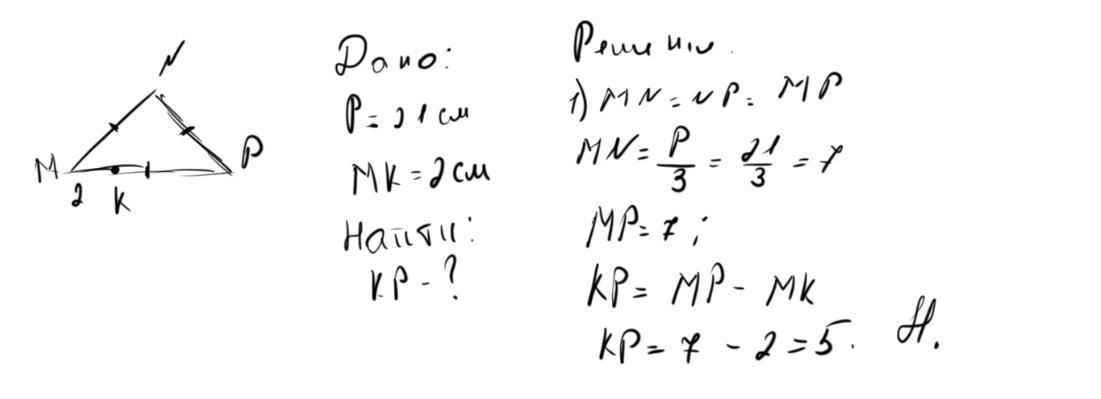 N
M
P
2
K
Дано:
P = 21 см
MK = 2 см
Найти:
KP - ?
Решение.
1) MN = NP = MP
MN = P/3 = 21/3 = 7
MP = 7 ;
KP = MP - MK
KP = 7 - 2 = 5.
Н.